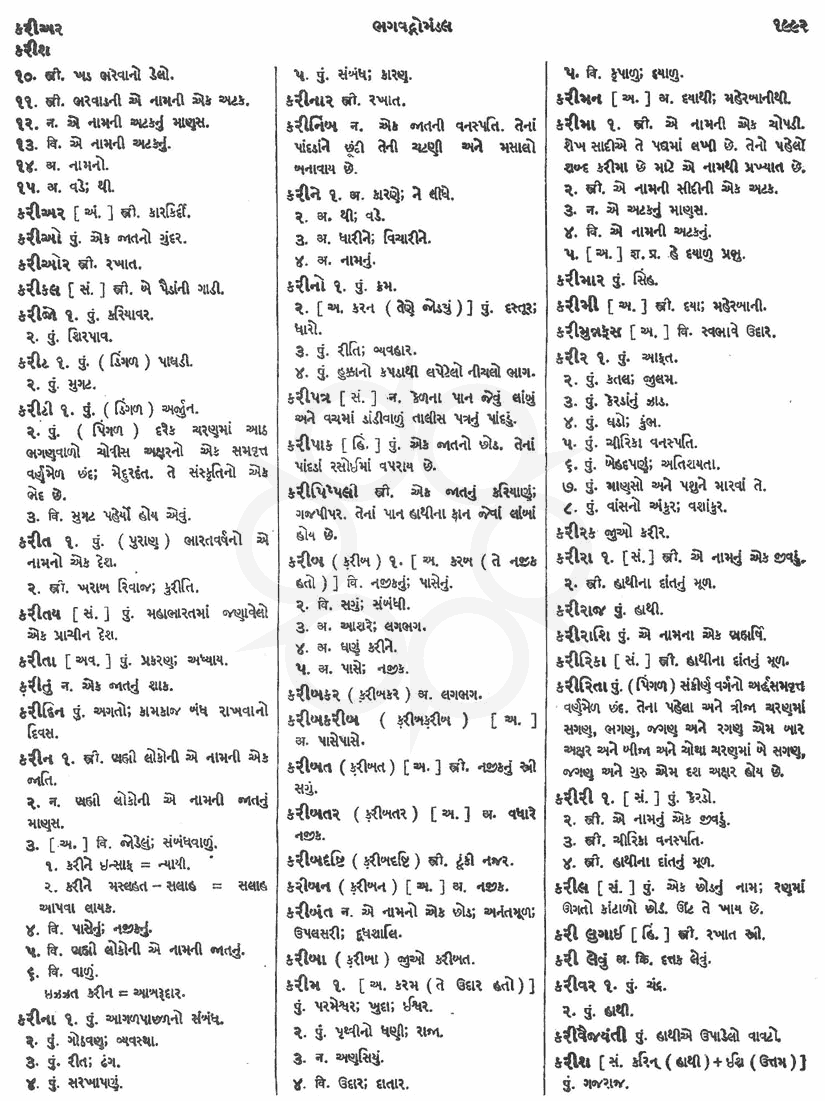 કરીઅર
કરીશ
ભગવદ્ગોમંડલ
૧૯૯૨
૧૦. સ્ત્રી. ખડ ભરવાનો ડેલો.
૧૧. સ્ત્રી. ભરવાડની એ નામની એક અટક.
૧૨. ન. એ નામની અટકનું માણસ.
૧૩. વિ. એ નામની અટકનું.
૧૪. અ. નામનો.
૧૫. અ. વડે; થી.
કરીઅર [ અં. ] સ્ત્રી. કારકિર્દી.
કરીઓ પું. એક જાતનો ગુંદર.
કરીઓર સ્ત્રી. રખાત.
કરીકલ [ સં. ] સ્ત્રી. બે પૈડાંની ગાડી.
કરીજો ૧. પું. કરિયાવર.
૨. પું. શિરપાવ.
કરીટ ૧. પું. ( ડિંગળ ) પાઘડી.
૨. પું. મુગટ.
કરીટી ૧. પું. ( ડિંગળ ) અર્જુન.
૨. પું. ( પિંગળ ) દરેક ચરણમાં આઠ
ભગણવાળો ચોવીસ અક્ષરનો એક સમવૃત્ત
વર્ણમેળ છંદ; મેદુરદંત. તે સંસ્કૃતિનો એક
ભેદ છે.
૩. વિ. મુગટ પહેર્યો હોય એવું.
કરીત ૧. પું. ( પુરાણ ) ભારતવર્ષનો એ
નામનો એક દેશ.
૨. સ્ત્રી. ખરાબ રિવાજ; કુરીતિ.
કરીતય [ સં. ] પું. મહાભારતમાં જણાવેલો
એક પ્રાચીન દેશ.
કરીતા [ અવ. ] પું. પ્રકરણ; અધ્યાય.
કરીતું ન. એક જાતનું શાક.
કરીદિન પું. અગતો; કામકાજ બંધ રાખવાનો
દિવસ.
કરીન ૧. સ્ત્રી. બ્રાહ્મી લોકોની એ નામની એક
જાતિ.
૨. ન. બ્રાહ્મી લોકોની એ નામની જાતનું
માણસ.
૩. [ અ. ] વિ. જોડેલું; સંબંધવાળું.
૧. કરીને ઇન્સાફ = ન્યાયી.
૨. કરીને મસ્લહત – સલાહ = સલાહ
આપવા લાયક.
૪. વિ. પાસેનું; નજીકનું.
૫. વિ. બ્રાહ્મી લોકોની એ નામની જાતનું.
૬. વિ. વાળું.
ઇઝ્ઝત કરીન = આબરૂદાર.
કરીના ૧. પું. આગળપાછળનો સંબંધ.
૨. પું. ગોઠવણ; વ્યવસ્થા.
૩. પું. રીત; ઢંગ.
૪. પું. સરખાપણું.
૫. પું. સંબંધ; કારણ.
કરીનાર સ્ત્રી. રખાત.
કરીનિંબ ન. એક જાતની વનસ્પતિ. તેનાં
પાંદડાંને છૂંદી તેની ચટણી અને મસાલો
બનાવાય છે.
કરીને ૧. અ. કારણે; ને લીધે.
૨. અ. થી; વડે.
૩. અ. ધારીને; વિચારીને.
૪. અ. નામનું.
કરીનો ૧. પું. ક્રમ.
૨. [ અ. કરન ( તેણે જોડ્યું ) ] પું. દસ્તૂર;
ધારો.
૩. પું. રીતિ; વ્યવહાર.
૪. પું. હુક્કાનો કપડાથી લપેટેલો નીચલો ભાગ.
કરીપત્ર [ સં. ] ન. કેળના પાન જેવું લાંબું
અને વચમાં દાંડીવાળું તાલીસ પત્રનું પાંદડું.
કરીપાક [ હિં. ] પું. એક જાતનો છોડ. તેનાં
પાંદડાં રસોઈમાં વપરાય છે.
કરીપિપ્પલી સ્ત્રી. એક જાતનું કરિયાણું;
ગજપીપર. તેનાં પાન હાથીના કાન જેવાં લાંબાં
હોય છે.
કરીબ ( ક઼રીબ ) ૧. [ અ. કરબ ( તે નજીક
હતો ) ] વિ. નજીકનું; પાસેનું.
૨. વિ. સગું; સંબંધી.
૩. અ. આશરે; લગભગ.
૪. અ. ઘણું કરીને.
૫. અ. પાસે; નજીક.
કરીબકર ( ક઼રીબકર ) અ. લગભગ.
કરીબકરીબ ( ક઼રીબક઼રીબ ) [ અ. ]
અ. પાસેપાસે.
કરીબત ( ક઼રીબત ) [ અ. ] સ્ત્રી. નજીકનું સ્ત્રી
સગું.
કરીબતર ( ક઼રીબતર ) [ અ. ] અ. વધારે
નજીક.
કરીબદૃષ્ટિ ( ક઼રીબદૃષ્ટિ ) સ્ત્રી. ટૂંકી નજર.
કરીબન ( ક઼રીબન ) [ અ. ] અ. નજીક.
કરીબંત ન. એ નામનો એક છોડ; અનંતમૂળ;
ઉપલસરી; દૂધશાલિ.
કરીબા ( ક઼રીબા ) જુઓ કરીબત.
કરીમ ૧. [ અ. કરમ ( તે ઉદાર હતો ) ]
પું. પરમેશ્વર; ખુદા; ઈશ્વર.
૨. પું. પૃથ્વીનો ધણી; રાજા.
૩. ન. અણસિયું.
૪. વિ. ઉદાર; દાતાર.
૫. વિ. કૃપાળુ; દયાળુ.
કરીમન [ અ. ] અ. દયાથી; મહેરબાનીથી.
કરીમા ૧. સ્ત્રી. એ નામની એક ચોપડી.
શેખ સાદીએ તે પદ્યમાં લખી છે. તેનો પહેલો
શબ્દ કરીમા છે માટે એ નામથી પ્રખ્યાત છે.
૨. સ્ત્રી. એ નામની સીદીની એક અટક.
૩. ન. એ અટકનું માણસ.
૪. વિ. એ નામની અટકનું.
૫. [ અ. ] શ. પ્ર. હે દયાળુ પ્રભુ.
કરીમાર પું. સિંહ.
કરીમી [ અ. ] સ્ત્રી. દયા; મહેરબાની.
કરીમુન્નફ્સ [ અ. ] વિ. સ્વભાવે ઉદાર.
કરીર ૧. પું. આફત.
૨. પું. કતલ; જુલમ.
૩. પું. કેરડાંનું ઝાડ.
૪. પું. ઘડો; કુંભ.
૫. પું. ચીરિકા વનસ્પતિ.
૬. પું. બેહદપણું; અતિશયતા.
૭. પું. માણસો અને પશુને મારવાં તે.
૮. પું. વાંસનો અંકુર; વશાંકુર.
કરીરક જુઓ કરીર.
કરીરા ૧. [ સં. ] સ્ત્રી. એ નામનું એક જીવડું.
૨. સ્ત્રી. હાથીના દાંતનું મૂળ.
કરીરાજ પું. હાથી.
કરીરાશિ પું. એ નામના એક બ્રહ્મર્ષિ.
કરીરિકા [ સં. ] સ્ત્રી. હાથીના દાંતનું મૂળ.
કરીરિતા પું. ( પિંગળ ) સંકીર્ણ વર્ગનો અર્દ્ધસમવૃત્ત
વર્ણમેળ છંદ. તેના પહેલા અને ત્રીજા ચરણમાં
સગણ, ભગણ, જગણ અને રગણ એમ બાર
અક્ષર અને બીજા અને ચોથા ચરણમાં બે સગણ,
જગણ અને ગુરુ એમ દશ અક્ષર હોય છે.
કરીરી ૧. [ સં. ] પું. કેરડો.
૨. સ્ત્રી. એ નામનું એક જીવડું.
૩. સ્ત્રી. ચીરિકા વનસ્પતિ.
૪. સ્ત્રી. હાથીના દાંતનું મૂળ.
કરીલ [ સં. ] પું. એક છોડનું નામ; રણમાં
ઊગતો કાંટાળો છોડ. ઊંટ તે ખાય છે.
કરી લુગાઈ [ હિં. ] સ્ત્રી. રખાત સ્ત્રી.
કરી લેવું સ. ક્રિ. દત્તક લેવું.
કરીવર ૧. પું. ચંદ્ર.
૨. પું. હાથી.
કરીવૈજયંતી પું. હાથીએ ઉપાડેલો વાવટો.
કરીશ [ સં. કરિન્ ( હાથી ) + ઈશ ( ઉત્તમ ) ]
પું. ગજરાજ.